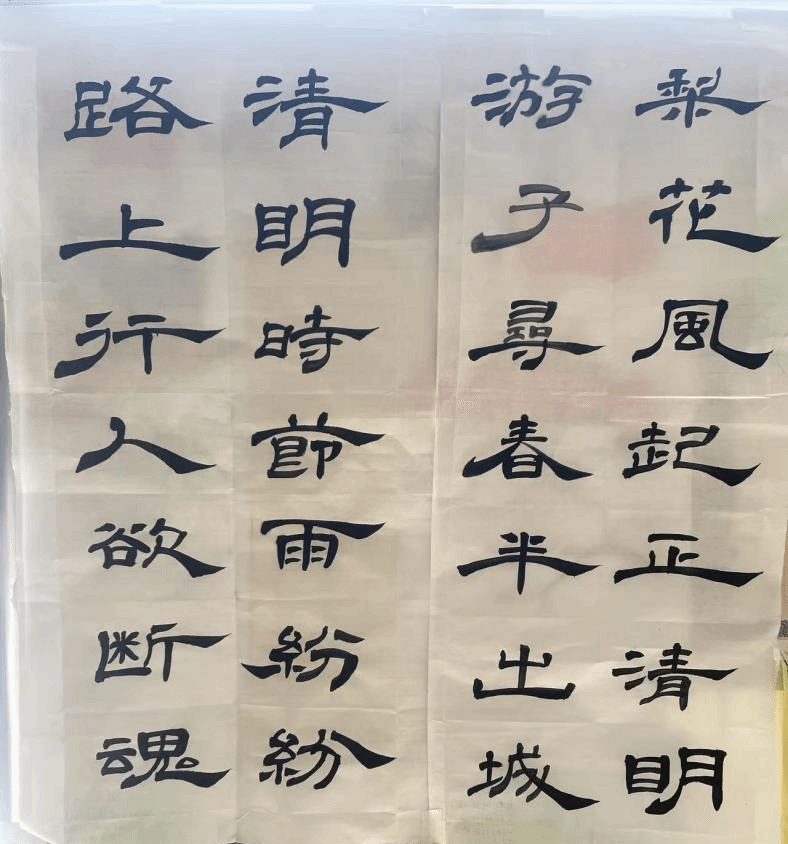 梨花風起正清明
游子尋春半出城
清明時節雨紛紛
路上行人欲断魂